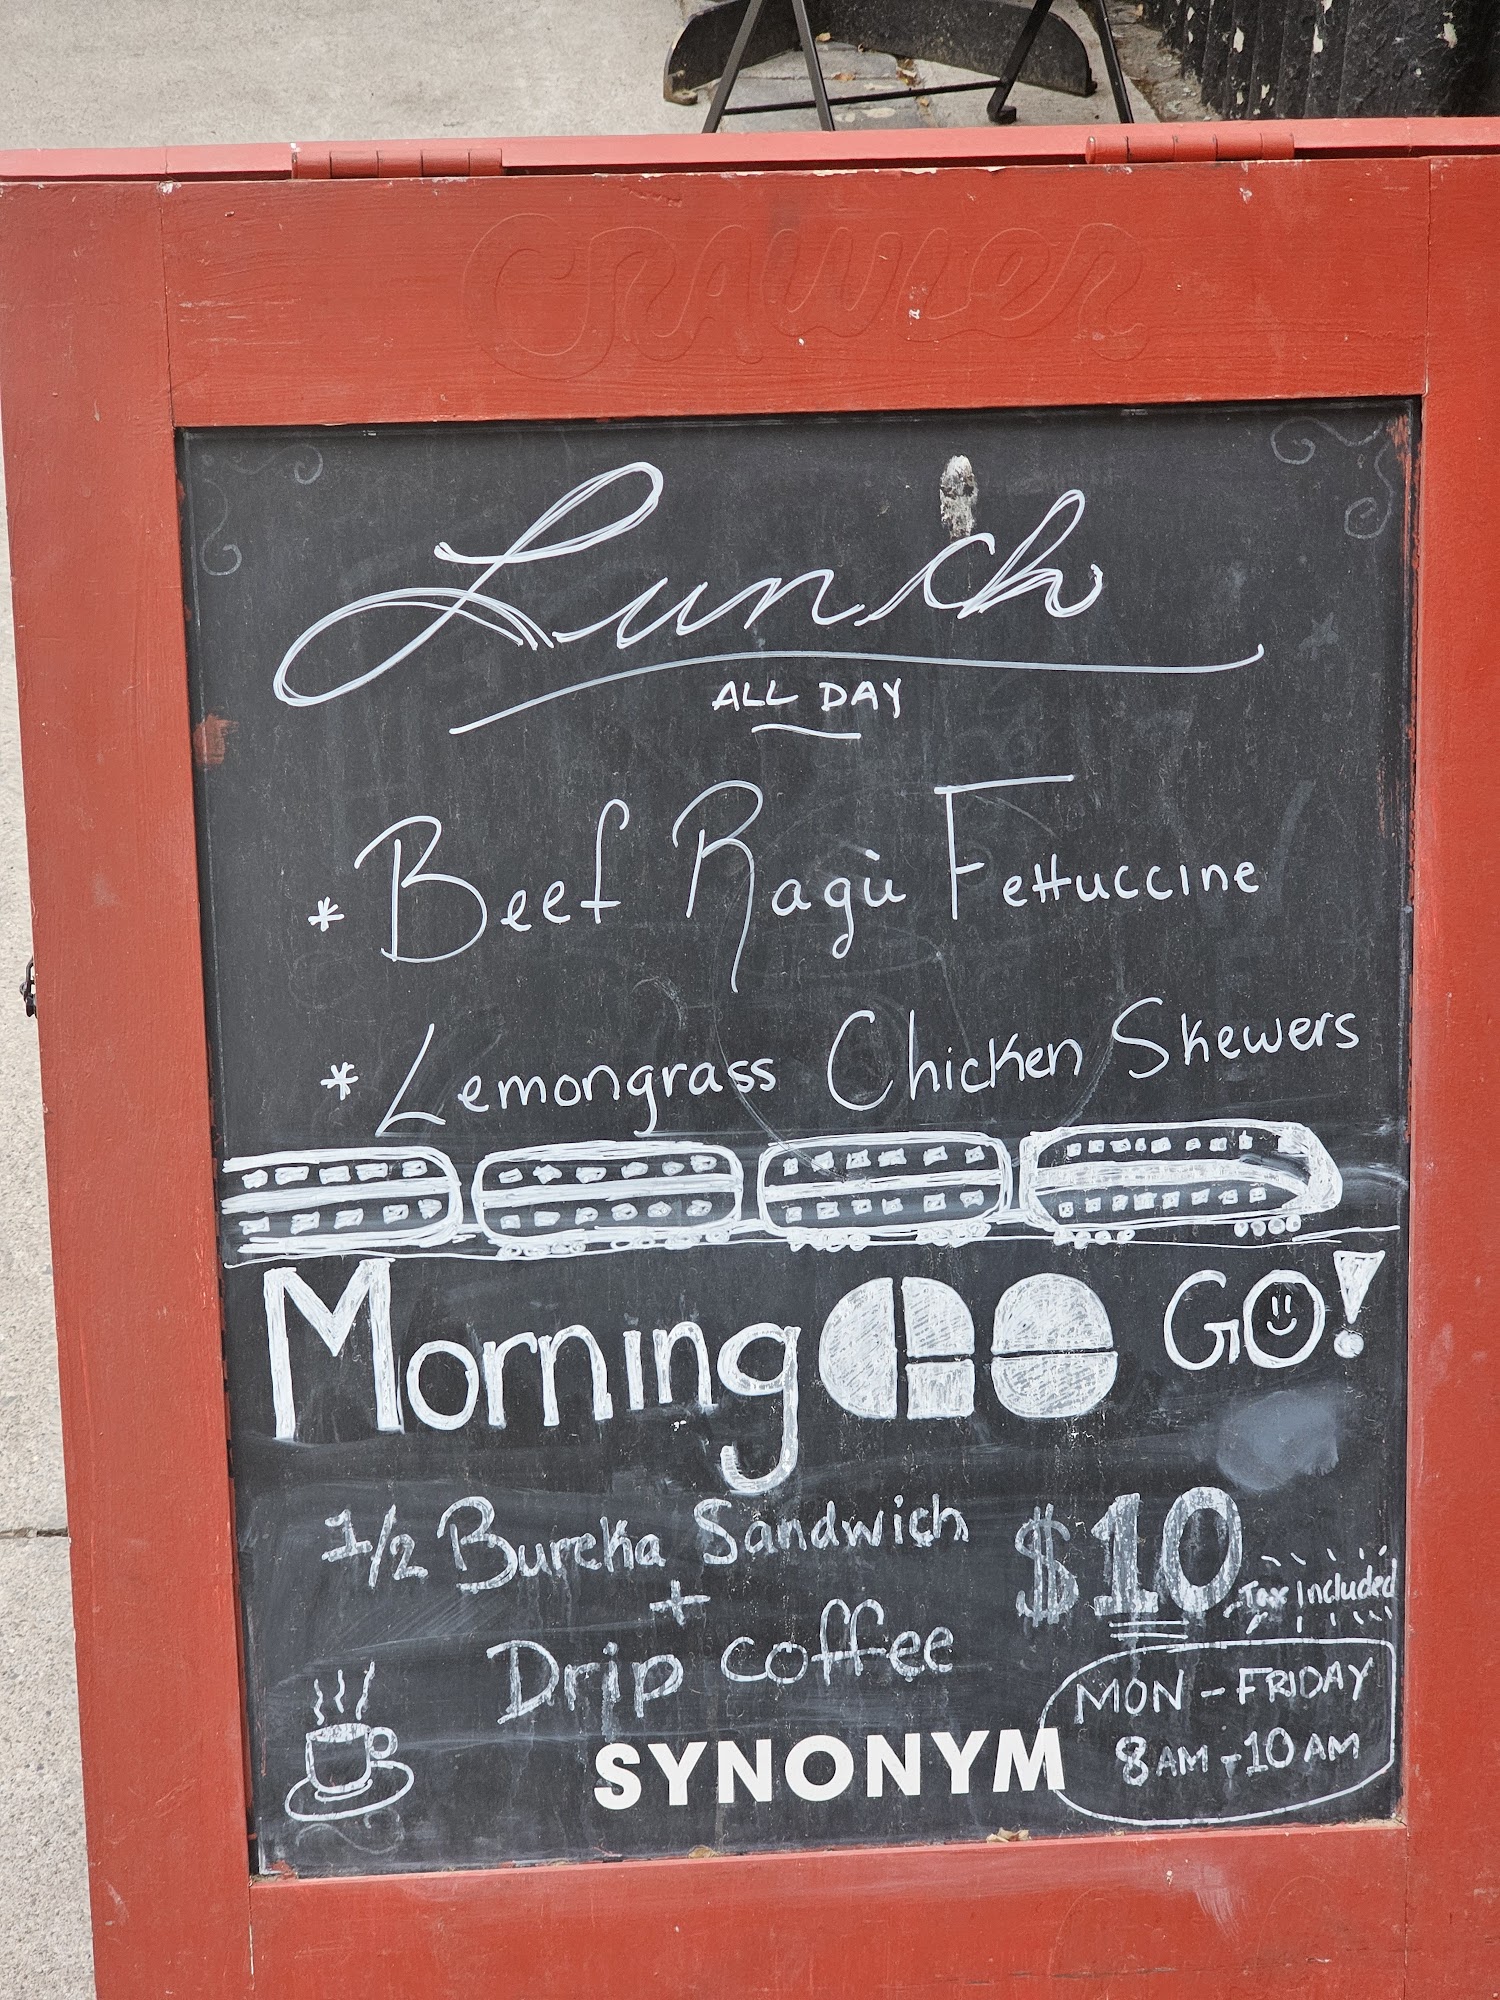 CRAWLER
Lunch
ALL DAY
* Beef Ragù Fettuccine
* Lemongrass Chicken Skewers
Morning GO GO!
1/2 Bureka Sandwich
+
Drip coffee
$10
Tax included
MON - FRIDAY
8AM - 10 AM
SYNONYM